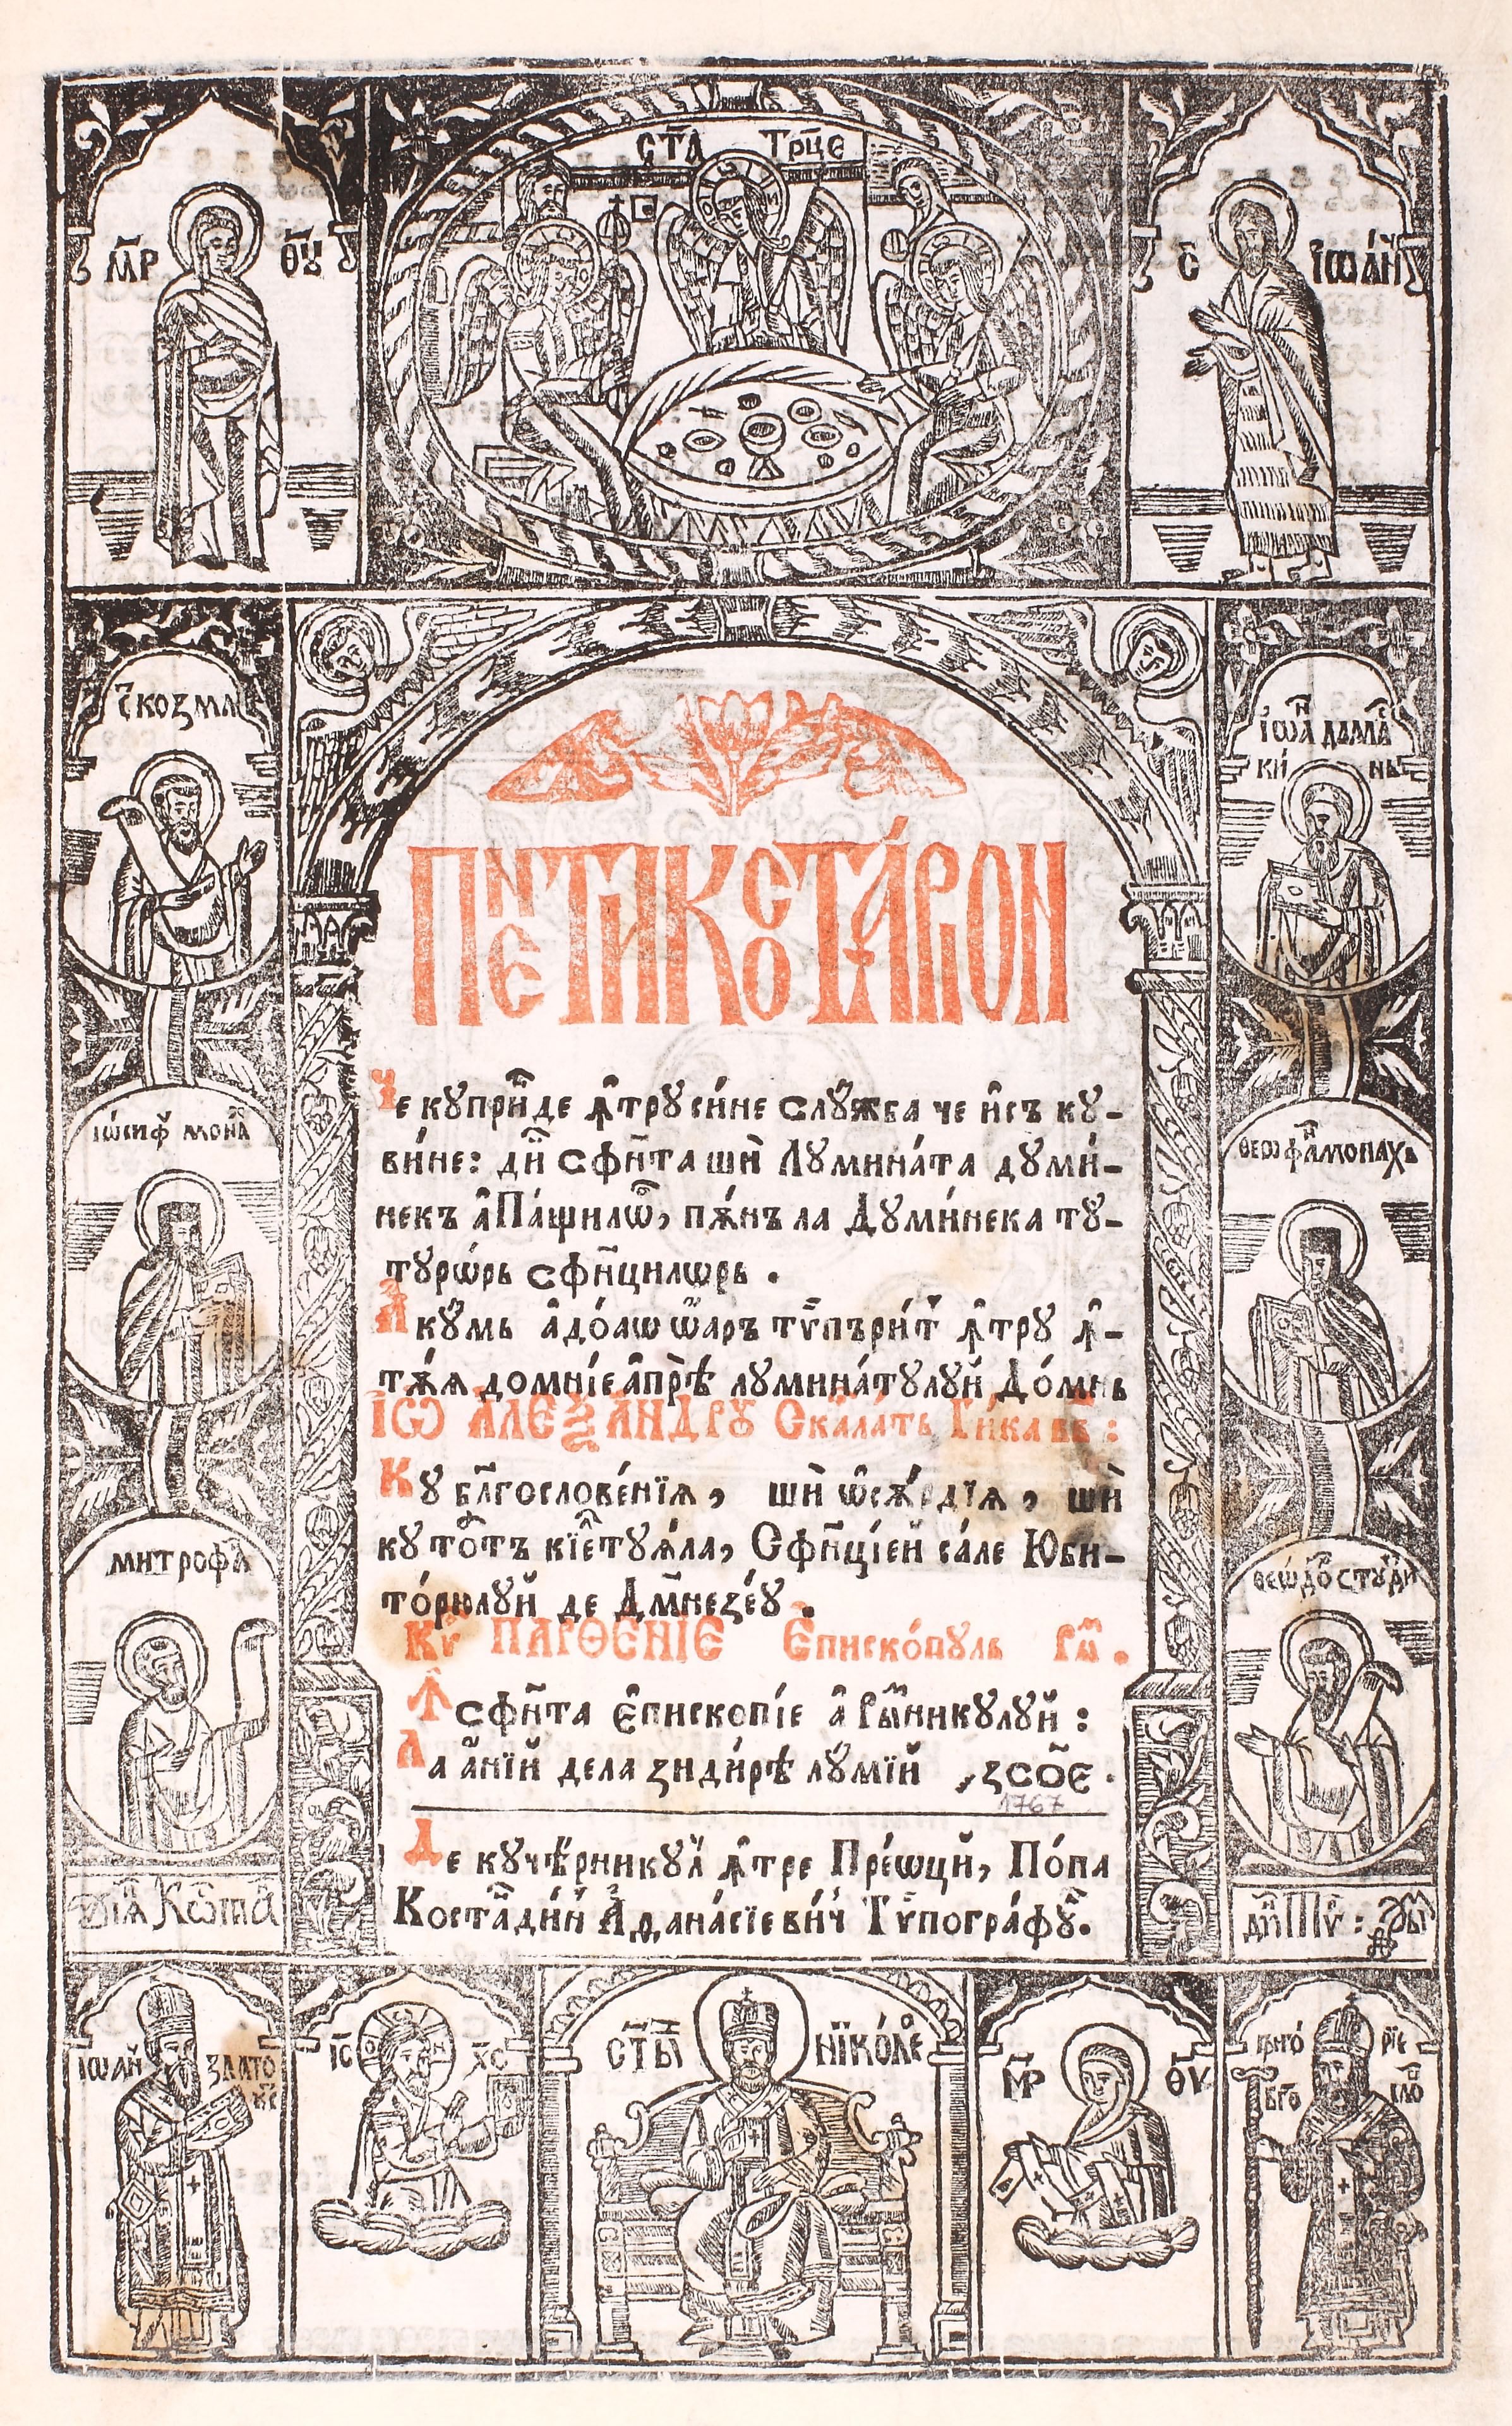 С҃ТА ТР҃ЦЕ
М҃Р Ѳ҃Ꙋ
С҃ ІѠА́Н
С҃ КОЗМА
ІѠА҃Н ДАМА҃С
КИ НЬ
ПЕНТИКОСТА́РІОН
Че кꙋпри́нде ꙟтрꙋси́не слꙋ́жба че и҆съ кꙋ-
ви́не: ди́н сфн҃та шѝ Лꙋмина́та дꙋми́-
некъ а҆ Па́щилѡр, пѫ́нъ ла Дꙋми́нека тꙋ-
тꙋрѡ́рь сфн҃цилѡрь .
Акꙋ́мь а҆до́аѡ ѡ҆аръ тѵпъри́т ꙟтрꙋ ꙟ-
тѫ́ѧ домні́е а҆прѣ лꙋмина́тꙋлꙋй До́мнь
ІѠ АЛЕѮА́НДРꙊ Скала́ть Ги́ка вв҃ :
Кꙋ бл҃гослове́нїѧ, шѝ ѡ҆сѫ́рдїѧ, шѝ
кꙋ то́тъ кїелтꙋѧ́ла, Сфн҃ці́ей сале Юби-
то́рюлꙋй де Дм҃незе́ꙋ .
Кѵ҃р ПАРѲЕ́НІЕ Е҆писко́пꙋль Рѫ҃м .
Ꙟ сфн҃та Е҆пископі́е а҆ Рѫ҃мникꙋлꙋй :
Ла а҆́нїй дела зиди́рѣ лꙋ́мїй ҂зсо҃е .
1767
Де кꙋчѣ́рникꙋл ꙟтре Прео́ѡцй, По́па
Коста́ндин А҆ѳана́сїеви́ч Тѵпогра́фꙋл.
ІѠ́СИФ МОНА҃Х
ѲЕОФА҃Н МОНАХЬ
МИТРОФА҃Н
ѲЕѠ́ДОР СТꙊДИ
ІѠАН ЗЛАТО
ꙊС
І҃С Х҃С
С҃ТЫ НИКО́ЛАЕ
М҃Р Ѳ҃Ѵ
ГРИГО́ РІЕ
БГО СЛО